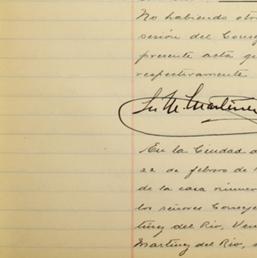 No habiendo otro
sesión del Consej
presente acta qu
respectivamente
M. Martínez
En la Ciudad d
22 de febrero de
de la casa número
los señores Conseje
tínez del Rio, Ven
Martínez del Rio,